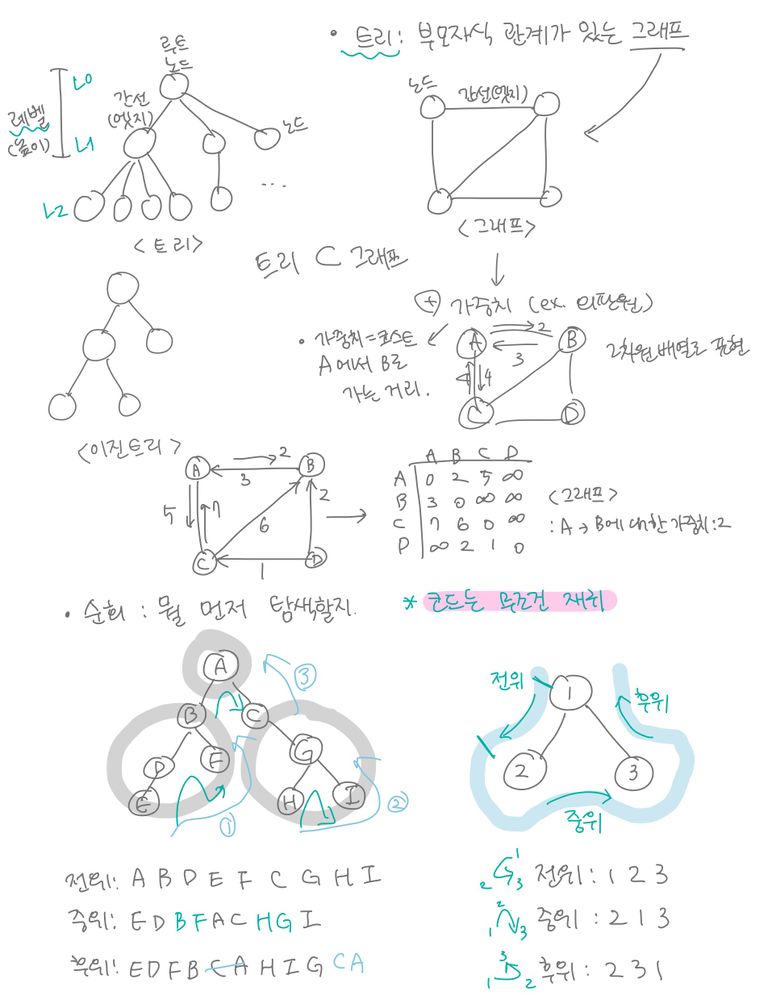 • 트리: 부모자식 관계가 있는 그래프
루트
노드
레벨
(높이)
L0
L1
L2
간선
(엣지)
노드
...
<트리>
노드
간선(엣지)
<그래프>
트리 ⊂ 그래프
⊕ 가중치 (ex. 외판원)
• 가중치=코스트
A에서 B로
가는 거리.
A 2 B
3
4
C D
2차원 배열로 표현
<이진트리>
A 2 B
3
5 7 6 2
C 1 D
A B C D
A 0 2 5 ∞
B 3 0 ∞ ∞
C 7 6 0 ∞
D ∞ 2 1 0
<그래프>
: A → B에 대한 가중치: 2
• 순회 : 뭘 먼저 탐색할지.
* 코드는 무조건 재귀
A
B C
D F G
E H I
① ② ③
전위
후위
중위
1
2 3
전위: A B D E F C G H I
중위: E D B F A C H G I
후위: E D F B C A H I G C A
1 2 3 전위: 1 2 3
1 2 3 중위: 2 1 3
1 2 3 후위: 2 3 1